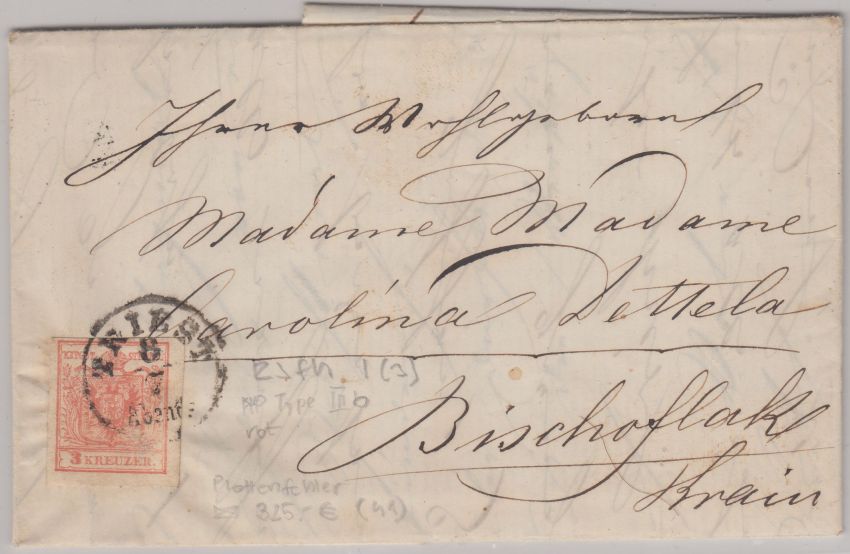 Ihrer Wohlgeboren
Madame Madame
Carolina Dettela
Bischoflak
Krain
TRIEST
6
Abends
3 KREUZER.
Type III b
rot
Plattenfehler
325.- €